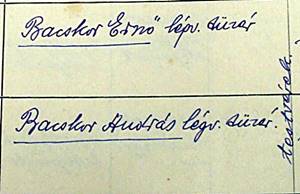 Bacskor Ernő" légv. tüzér
Bacskor András légv. tüzér.
testvérek.